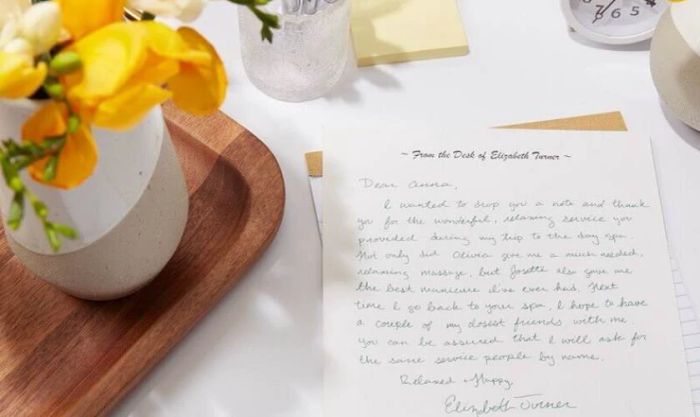 7 6 5
~ From the Desk of Elizabeth Turner ~
Dear Anna,
I wanted to drop you a note and thank
you for the wonderful, relaxing service you
provided during my trip to the day spa.
Not only did Olivia give me a much needed,
relaxing massage, but Josette also gave me
the best manicure I've ever had. Next
time I go back to your spa, I hope to have
a couple of my closest friends with me.
You can be assured that I will ask for
the same service people by name.
Relaxed + Happy,
Elizabeth Turner